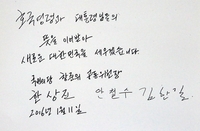 호국영령과 대통령님들의
뜻을 이어받아
새로운 대한민국을 세우겠습니다.
국민의당 창준위 공동위원장
한상진 안철수 김한길
2016년 1월 11일